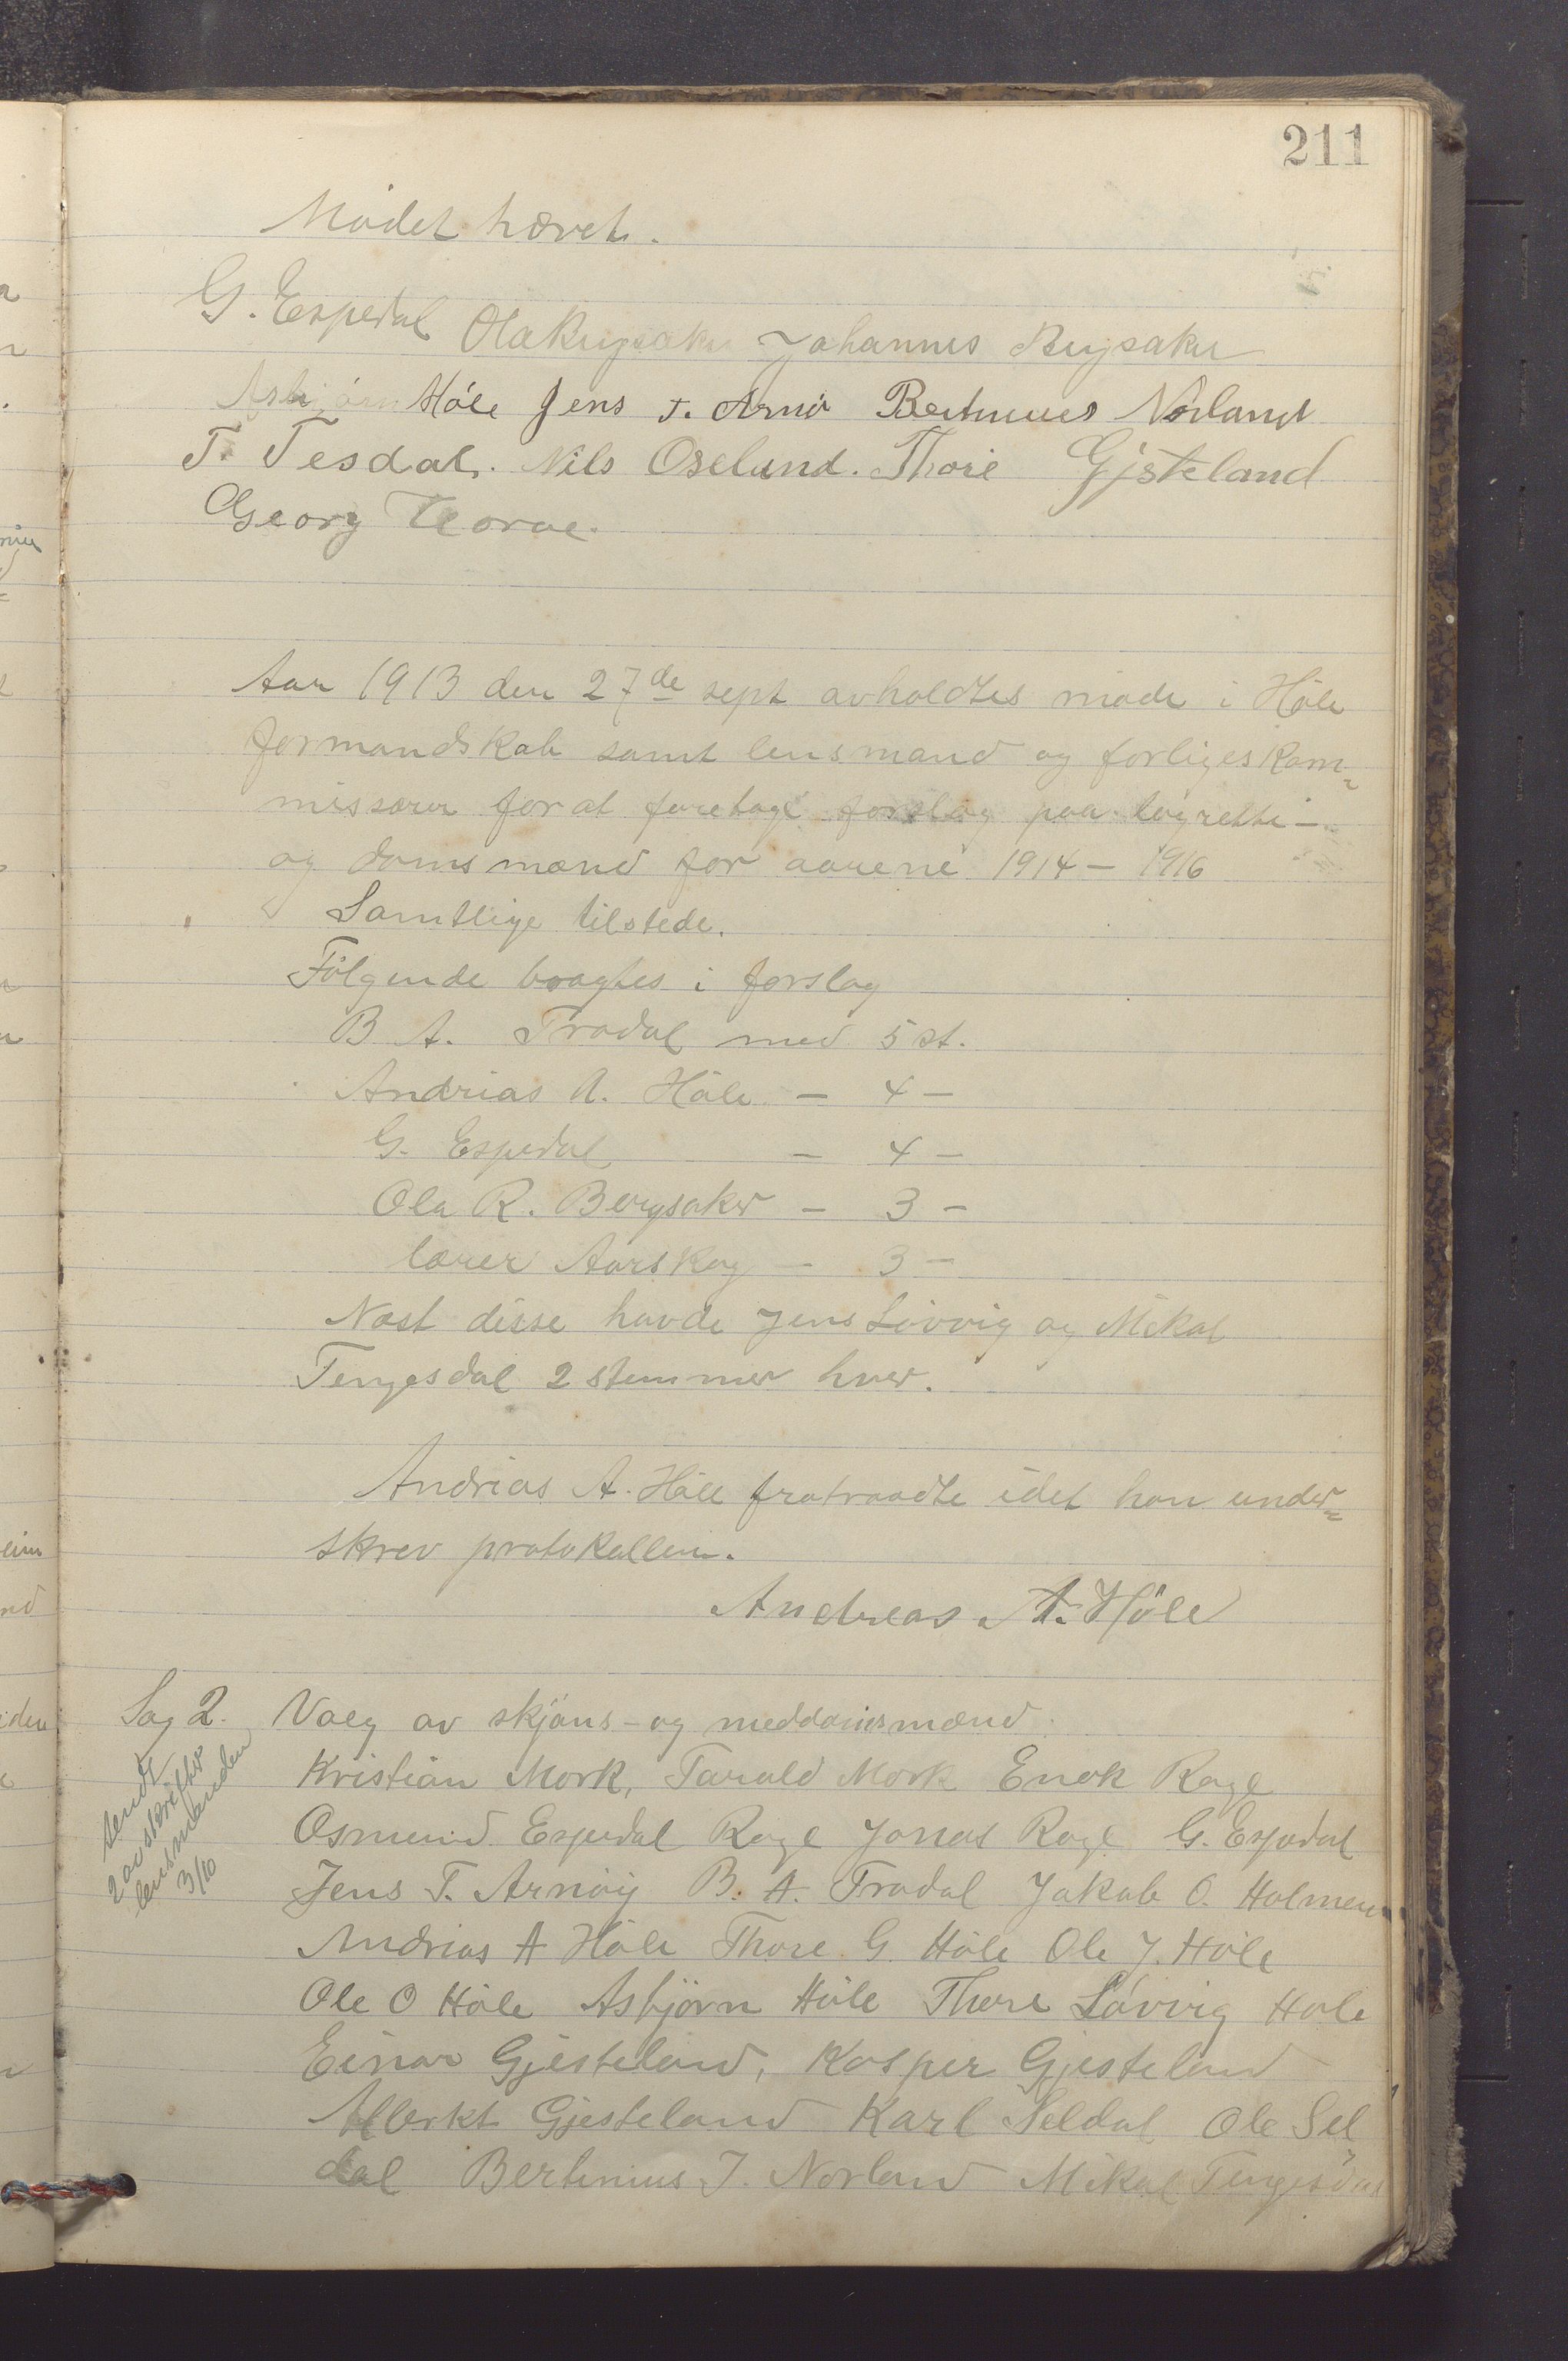 211
Mødet hævet.
G. Espedal Ola Bergsaker Johannes Bergsaker
Asbjørn Høle Jens T. Arnø Bertinius Norland
T. Tesdal. Nils Oseland. Thore Gjsteland
Georg
Aar 1913 den 27de sept avholdtes møde i Høle
formandskab samt lensmand og forligeskom-
missærer for at foretage forslag paa lagrette-
og domsmænd for aarene 1914 - 1916
Samtlige tilstede.
Følgende bragtes i forslag
B A. Tradal med 5 st.
Andrias A. Høle - 4 -
G. Espedal - 4 -
Ola R. Bergsaker - 3 -
lærer Aarskog - 3 -
Næst disse havde Jens Løvvig og Mikal
Tengesdal 2 stemmer hver.
Andrias A. Høle fratraadte idet han under-
skrev protokollen.
Andreas A. Høle
Sag 2. Valg av skjøns- og meddomsmænd.
sendt
2 avskrifter
lensmanden
3/10
Kristian Mork, Tarald Mork Enok Rage
Osmund Espedal Rage Jonas Rage G. Espedal
Jens T. Arnøy B. A. Tradal Jakob O. Holmen
Andrias A Høle Thore G. Høle Ole J. Høle
Ole O Høle Asbjørn Høle Thore Løvvig Hole
Einar Gjesteland, Kasper Gjesteland
Albrkt Gjesteland Karl Seldal Ole Sel
dal Bertinius J. Norland Mikal Tengesdal